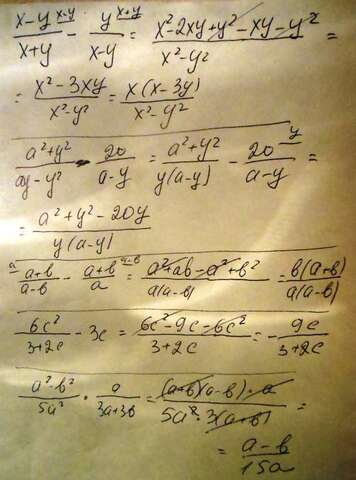 (x-y)/(x+y) ^(x-y) - y/(x-y) ^(x+y) = (x²-2xy+y²-xy-y²)/(x²-y²) =
= (x²-3xy)/(x²-y²) = x(x-3y)/(x²-y²)
(a²+y²)/(ay-y²) - 20/(a-y) = (a²+y²)/(y(a-y)) - 20/(a-y) ^y =
= (a²+y²-20y)/(y(a-y))
^a (a+b)/(a-b) - (a+b)/a ^(a-b) = (a²+ab-a²+b²)/(a(a-b)) = b(a+b)/(a(a-b))
6c²/(3+2c) - 3c = (6c²-9c-6c²)/(3+2c) = -9c/(3+2c)
(a²-b²)/5a² · a/(3a+3b) = ((a+b)(a-b)·a)/(5a²·3(a+b)) =
= (a-b)/15a